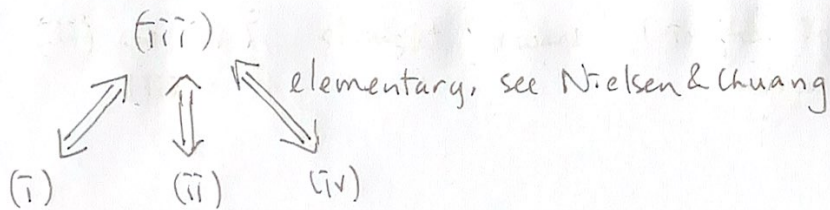 (iii)
elementary, see Nielsen & Chuang
(i) (ii) (iv)